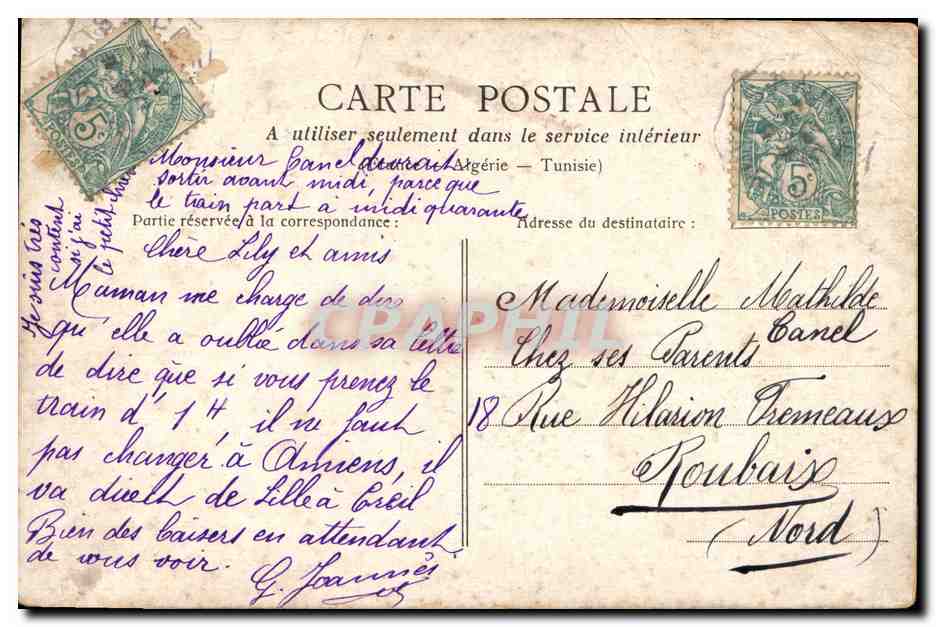 CARTE POSTALE
A utiliser seulement dans le service intérieur
Algérie — Tunisie)
Monsieur Canel devrait
sortir avant midi, parce que
le train part à midi quarante
Partie réservée à la correspondance :
Adresse du destinataire :
Je suis très
content
si j'ai
le petit
Chère Lily et amis
Maman me charge de dire
qu'elle a oublié dans sa lettre
de dire que si vous prenez le
train d' 1H, il ne faut
pas changer à Amiens, il
va direct de Lille à Creil
Bien des baisers en attendant
de vous voir.
G. Joannès
Mademoiselle Mathilde
Canel
Chez ses Parents
18 Rue Hilarion Tremeaux
Roubaix
(Nord)
5c
POSTES
5c
POSTES
CPAPHIL